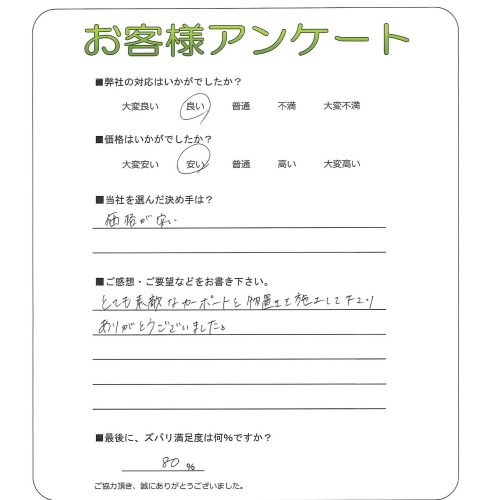 お客様アンケート
■弊社の対応はいかがでしたか？
大変良い 良い 普通 不満 大変不満
■価格はいかがでしたか？
大変安い 安い 普通 高い 大変高い
■当社を選んだ決め手は？
価格が安い
■ご感想・ご要望などをお書き下さい。
とても素敵なカーポートと物置まで施工して下さり
ありがとうございました。
■最後に、ズバリ満足度は何％ですか？
80 ％
ご協力頂き、誠にありがとうございました。